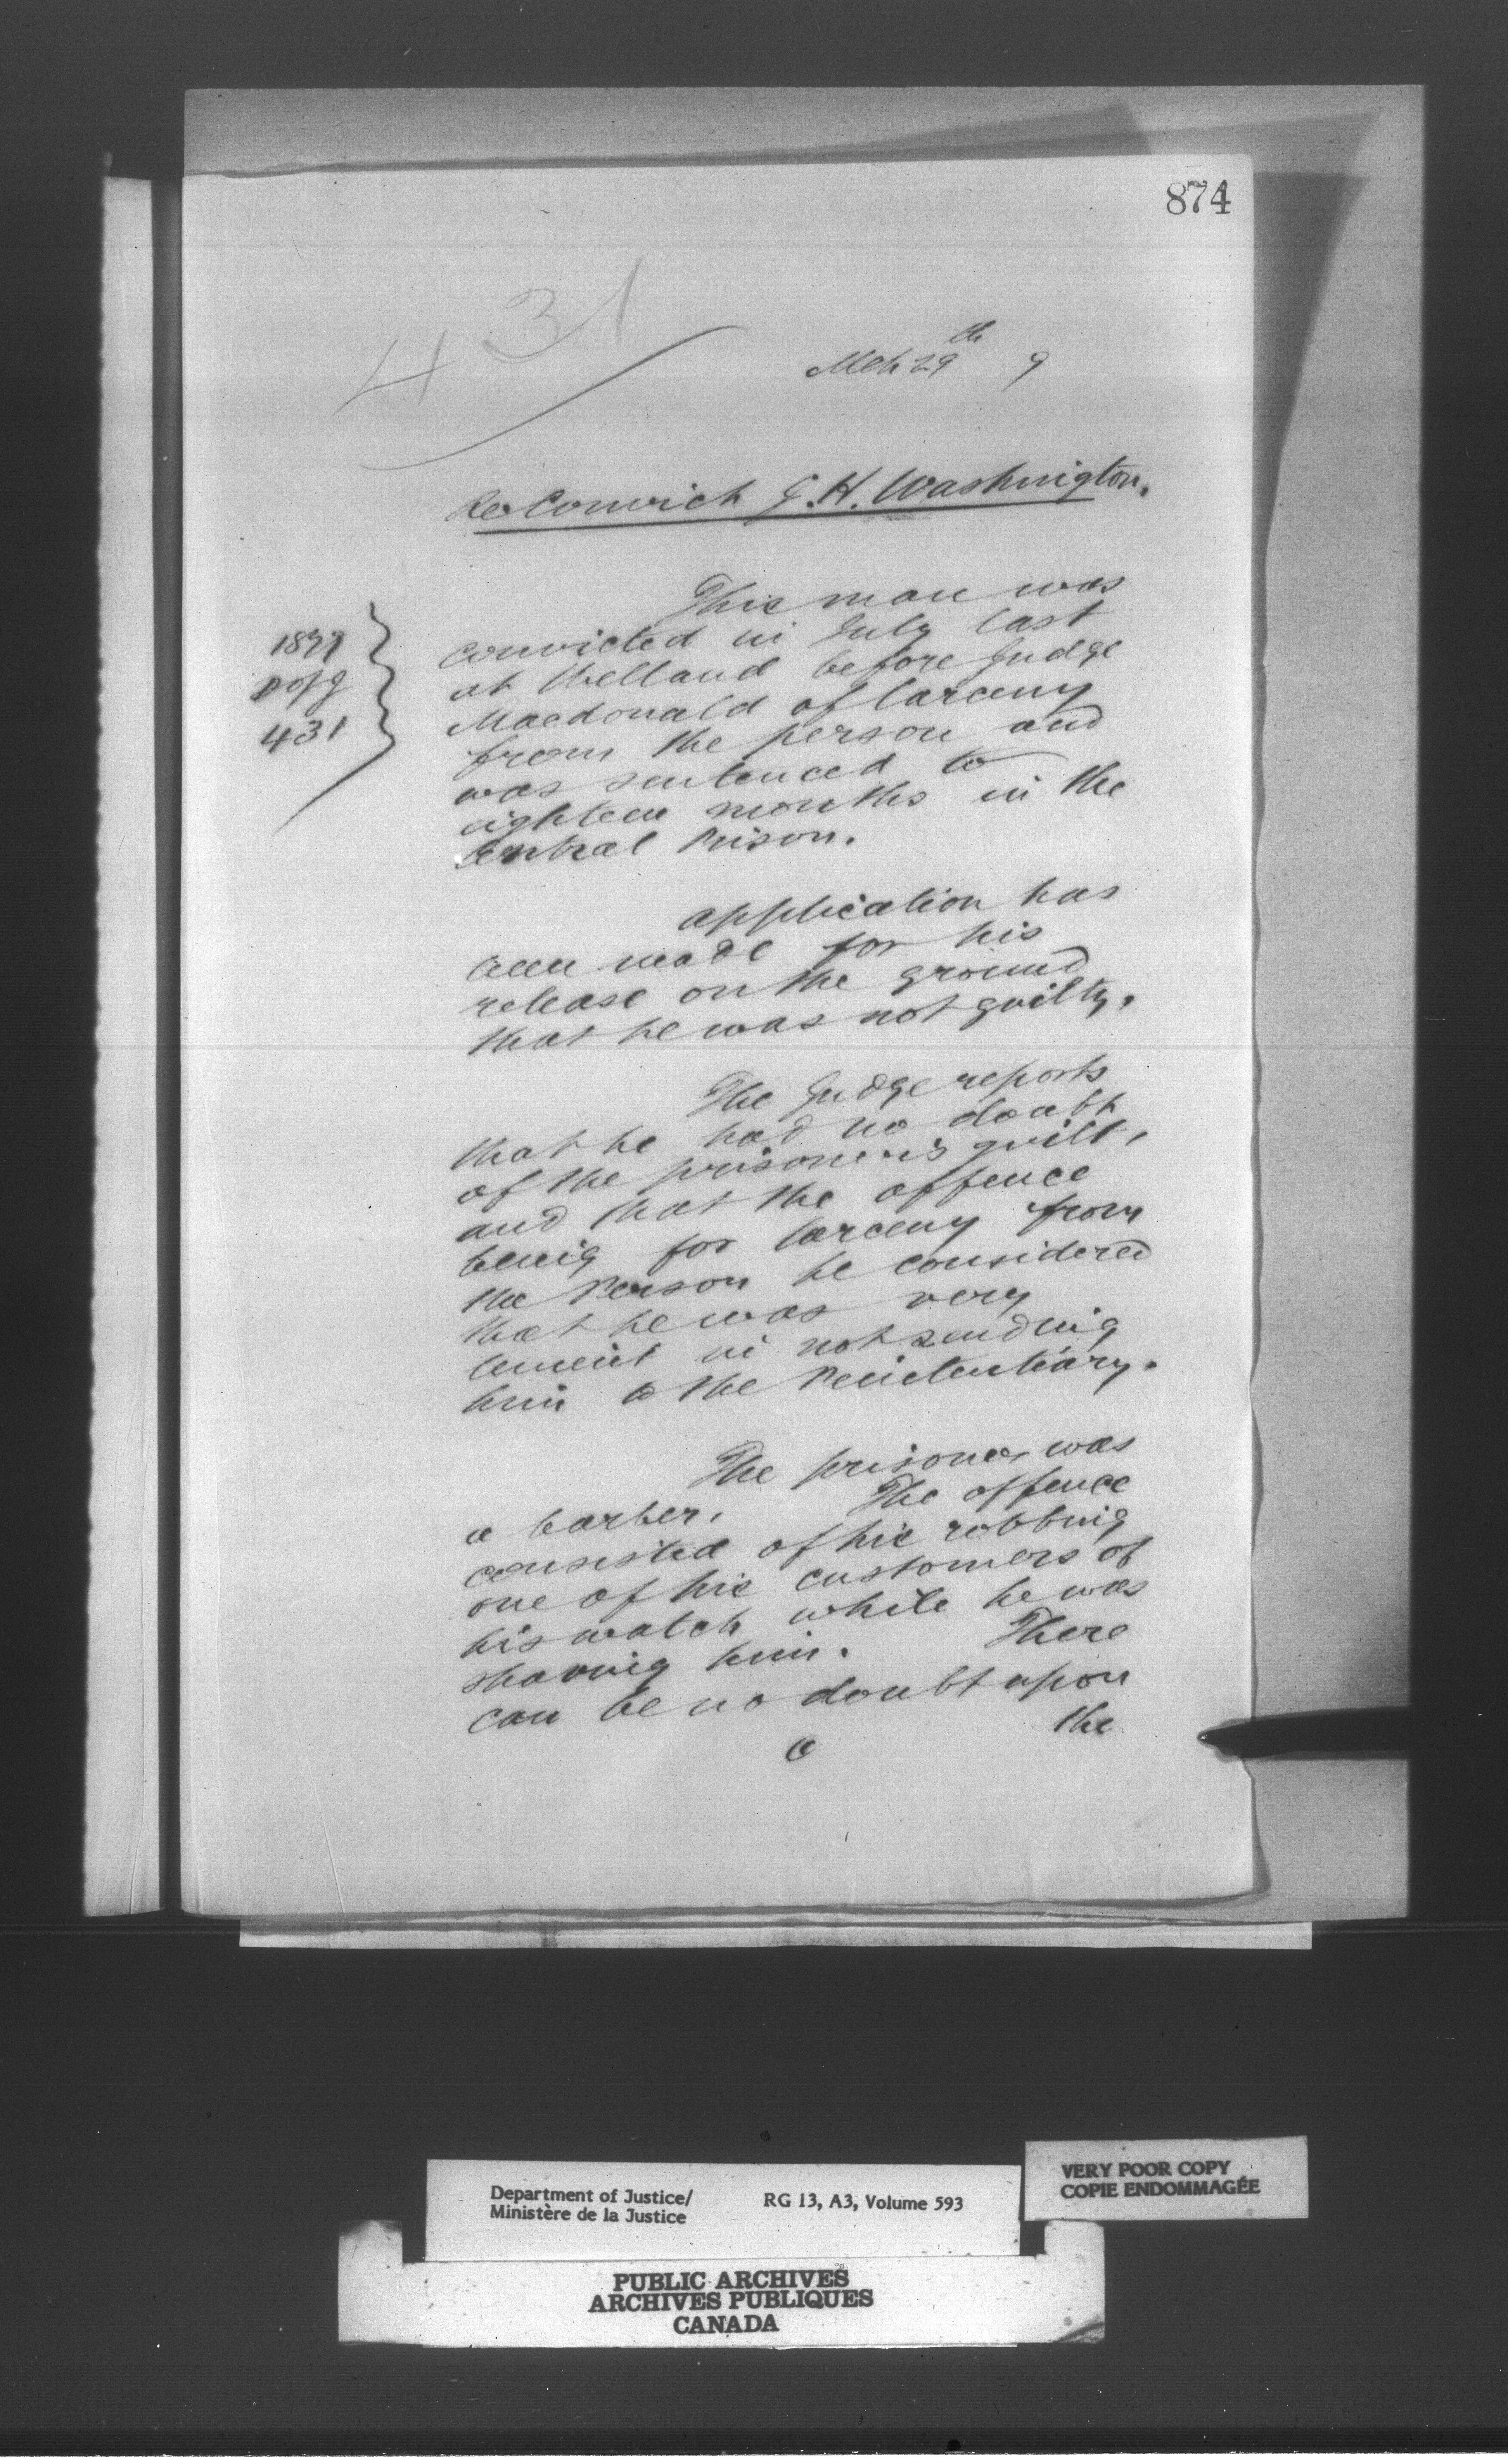 874
431
Mch 29th 9
Re Convict G. H. Washington.
1879
431
This man was
convicted in July last
at Welland before Judge
Macdonald of larceny
from the person and
was sentenced to
eighteen months in the
Central Prison.
application has
been made for his
release on the ground
that he was not guilty.
The Judge reports
that he had no doubt
of the prisoner's guilt,
and that the offence
being for larceny from
the Person he considered
that he was very
lenient in not sending
him to the Penitentiary.
The prisoner was
a barber. The offence
consisted of his robbing
one of his customers of
his watch while he was
shaving him. There
can be no doubt upon
the
Department of Justice/
Ministère de la Justice
RG 13, A3, Volume 593
VERY POOR COPY
COPIE ENDOMMAGÉE
PUBLIC ARCHIVES
ARCHIVES PUBLIQUES
CANADA